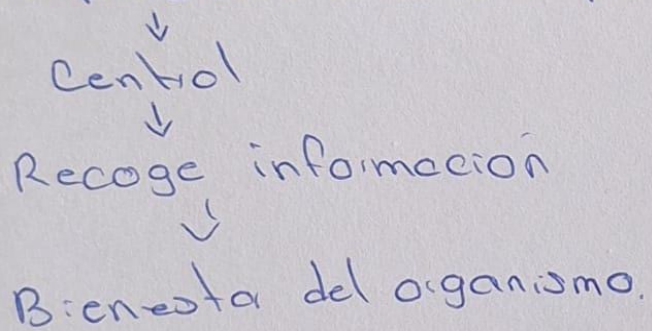 ↓
Central
↓
Recoge información
↓
Bienestar del organismo.